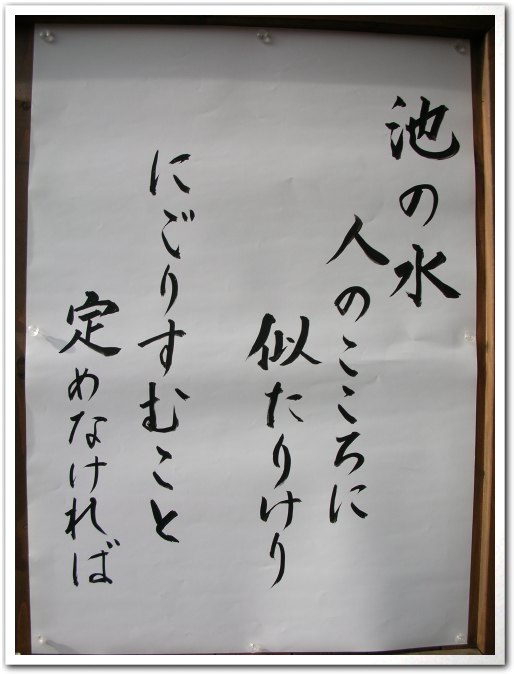 池の水
人のこころに
似たりけり
にごりすむこと
定めなければ